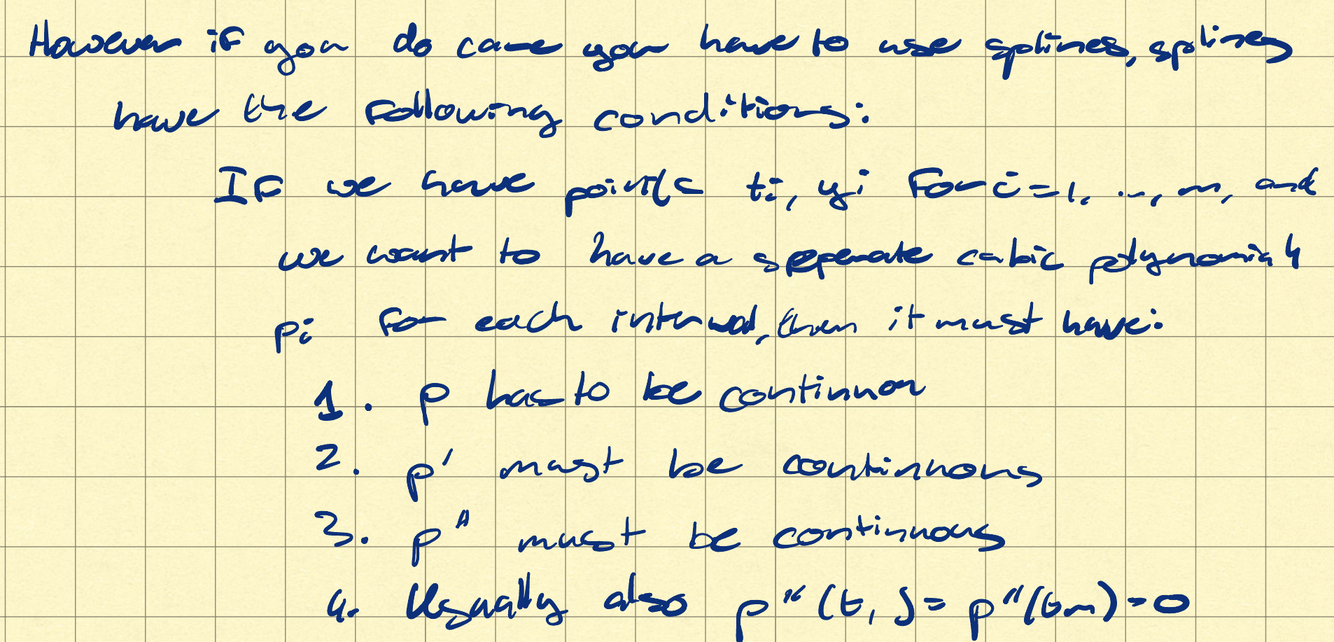 However if you do care you have to use splines, splines
have the following conditions:
If we have points ti, yi for i=1, ..., m, and
we want to have a seperate cubic polynomial
pi for each interval, then it must have:
1. p has to be continuou
2. p' must be continuous
3. p" must be continuous
4. Usually also p"(t1)= p"(tm)=0